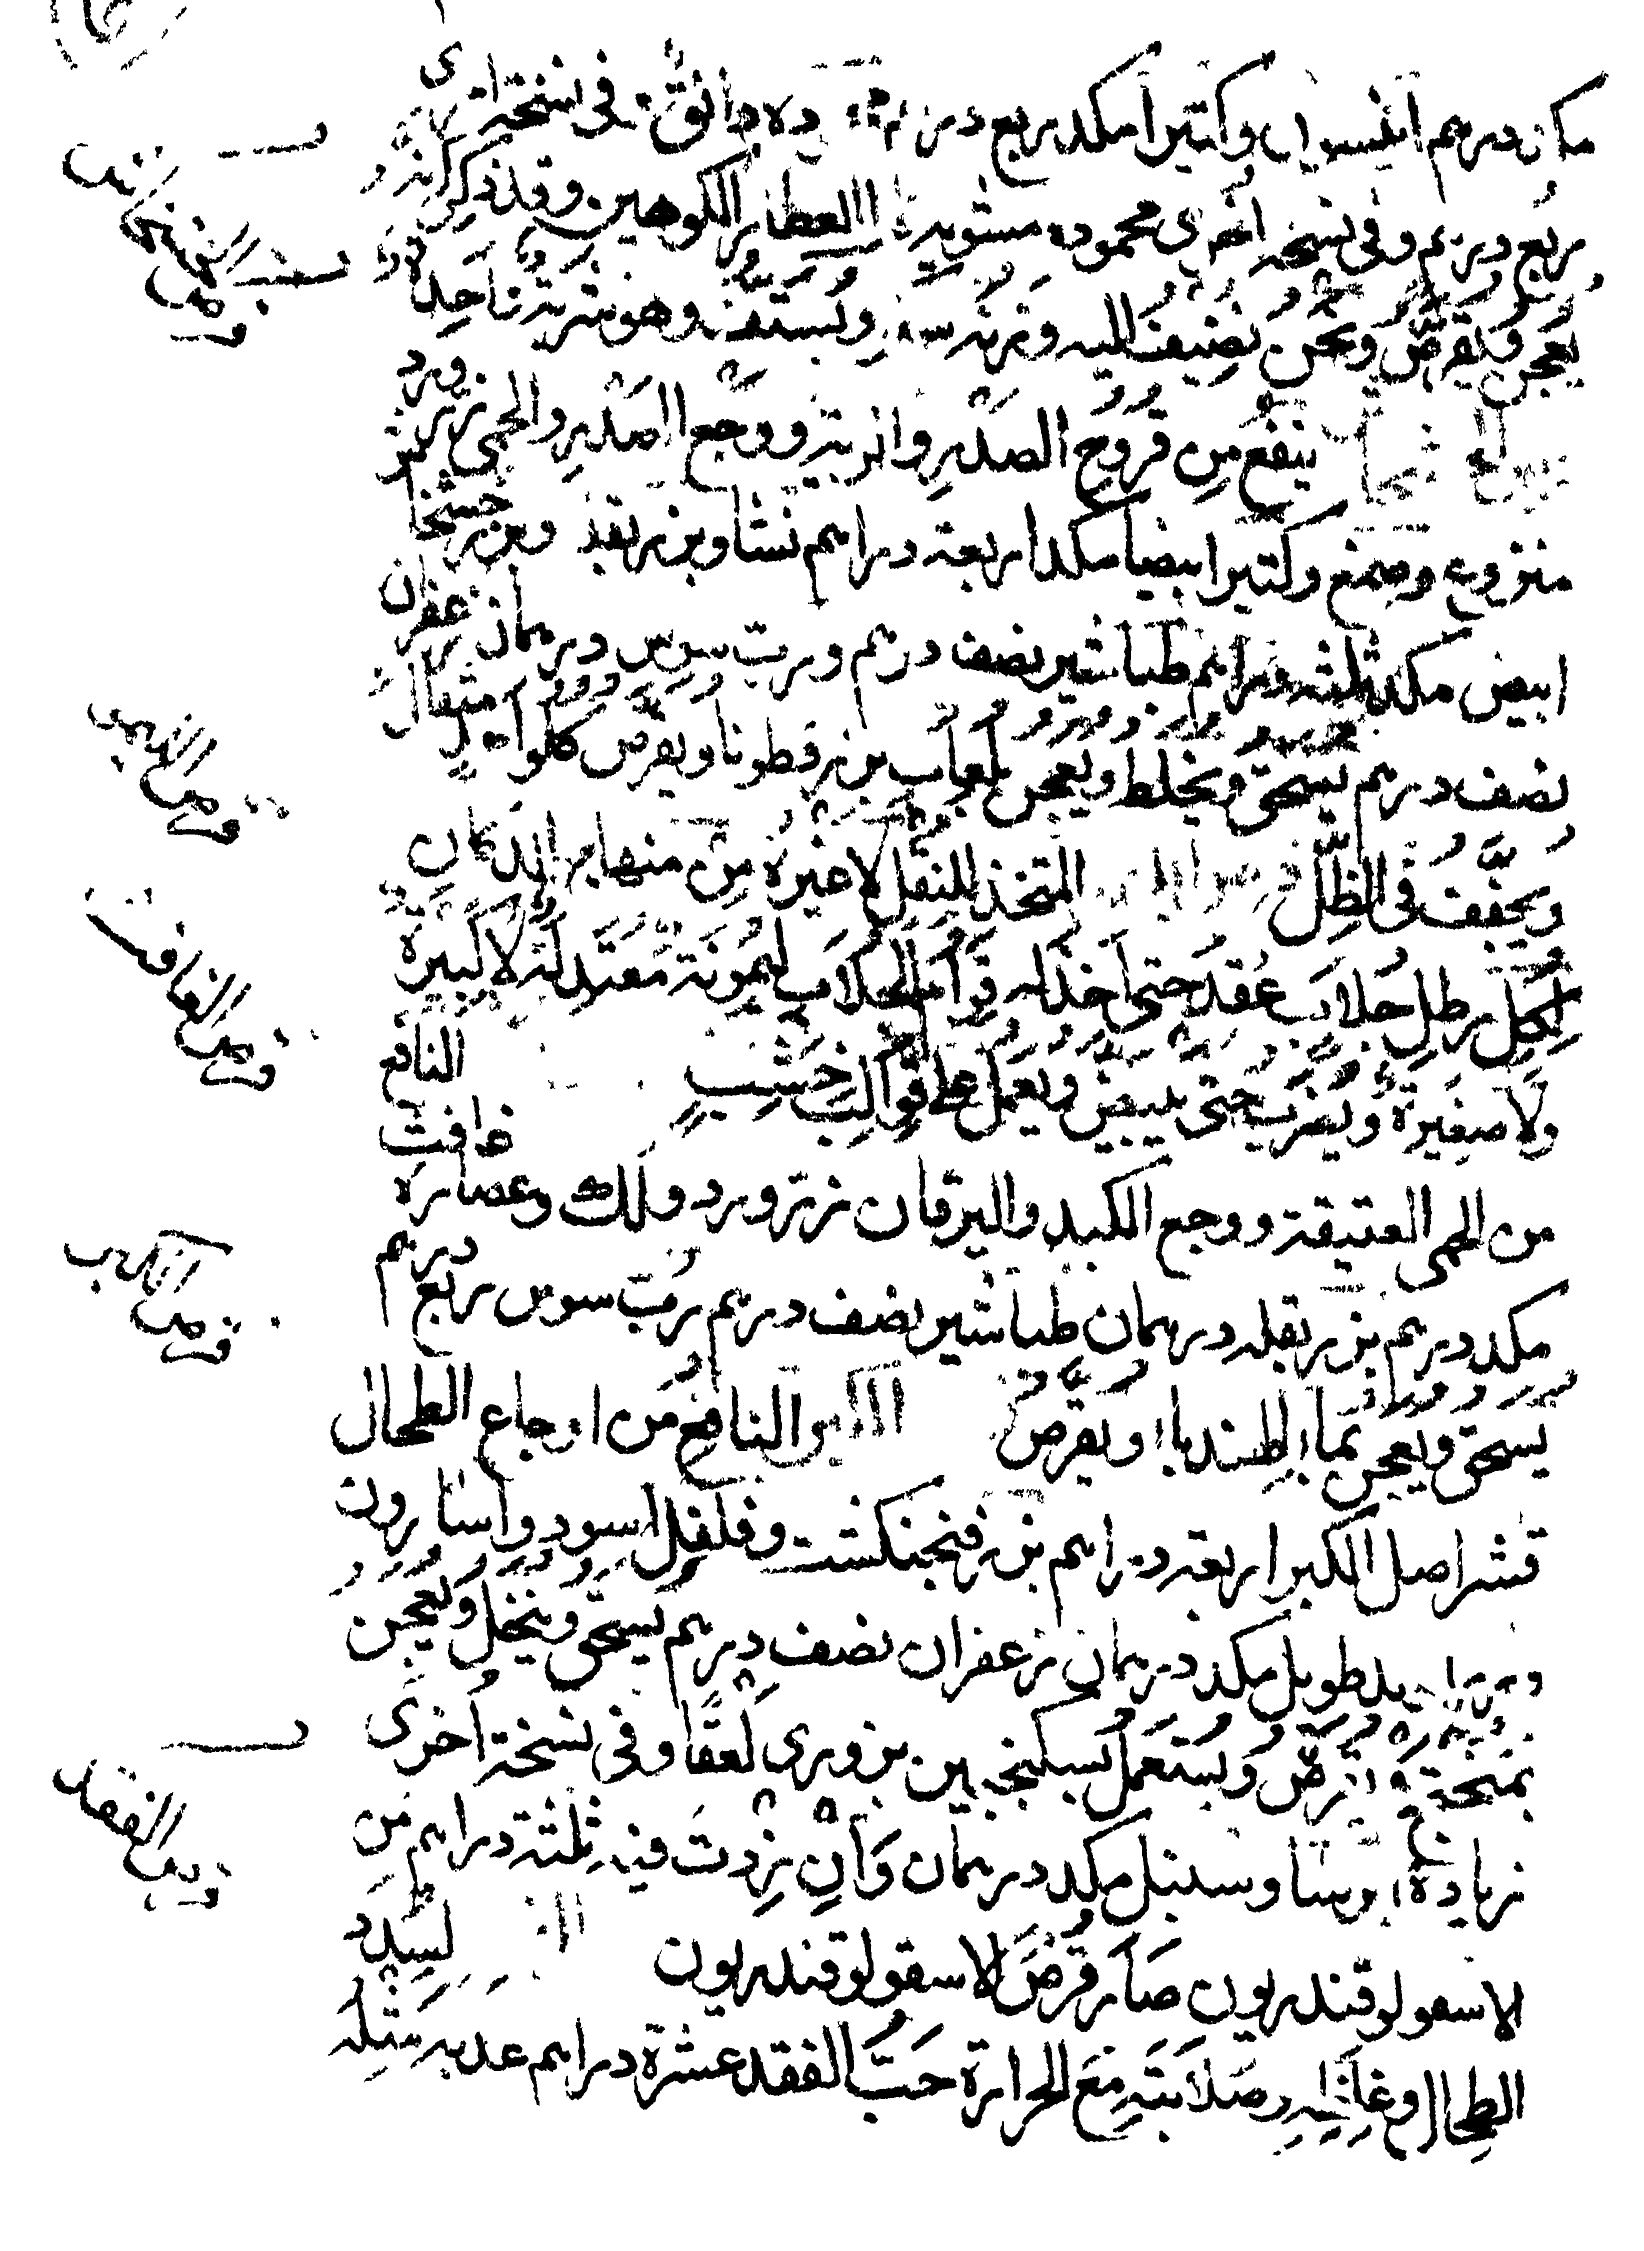 مكد درهم انيسون وكتيرا مكد ربع درهم ده دانق في نسخة اخرى
ربع درهم وفي نسخه اخرى محموده مشويه العطار الكوهين وقد ذكر انه
يعجن ويقرص ونحن نضيف اليه ويستف وهو
ينفع من قروح الصدر والرية ووجع الصدر والحمى زر ورد
منزوع وصمغ وكتيرا بيضا مكد اربعة دراهم نشا وبزر بقلة وبزر خشخاش
ابيض مكد ثلثة دراهم طباشير نصف درهم ورب سوس درهمان زعفران
نصف درهم يسحق ويخلط ويعجن بلعاب بزر قطونا ويقرص كل واحد مثقال
ويجفف في الظل المتخذ للنقل لا غيره من منها
لكل رطل جلاب عقد حتى اخذ له قوام الجلاب ليمونة معتدلة لا كبيرة
ولا صغيرة ويضرب حتى يبيض ويعمل على قوالب خشب النافع
من الحمى العتيقة ووجع الكبد واليرقان زر ورد ولك وعصارة غافت
مكد درهم بزر بقله درهمان طباشير نصف درهم رب سوس ربع درهم
يسحق ويعجن بماء الهندباء ويقرص الكبر النافع من اوجاع الطحال
قشر اصل الكبر اربعة دراهم بزر فنجنكشت وفلفل اسود واسارون
طويل مكد درهمان زعفران نصف درهم يسحق وينخل ويعجن
ويقرص ويستعمل بسكنجبين بزوري لعقا وفي نسخة اخرى
زيادة ايرسا وسنبل مكد درهمان وان زدت فيه ثلثة دراهم من
الاسقولوقندريون صار قرص الاسقولوقندريون لسدد
الطحال وغلظه وصلابته مع الحرارة حب الفقد عشرة دراهم
قرص الغافت
قرص الكبر
قرص الفقد